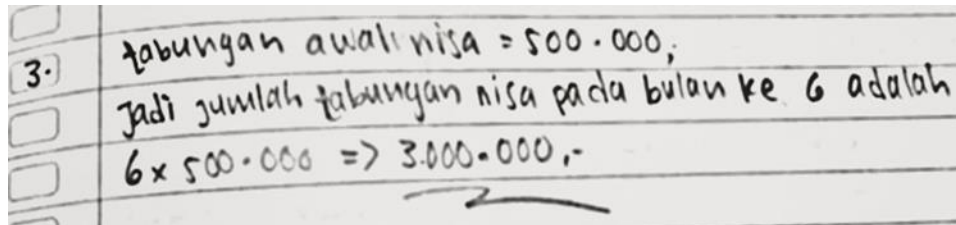 3. tabungan awal nisa = 500.000,
Jadi jumlah tabungan nisa pada bulan ke 6 adalah
6 x 500.000 => 3.000.000,-